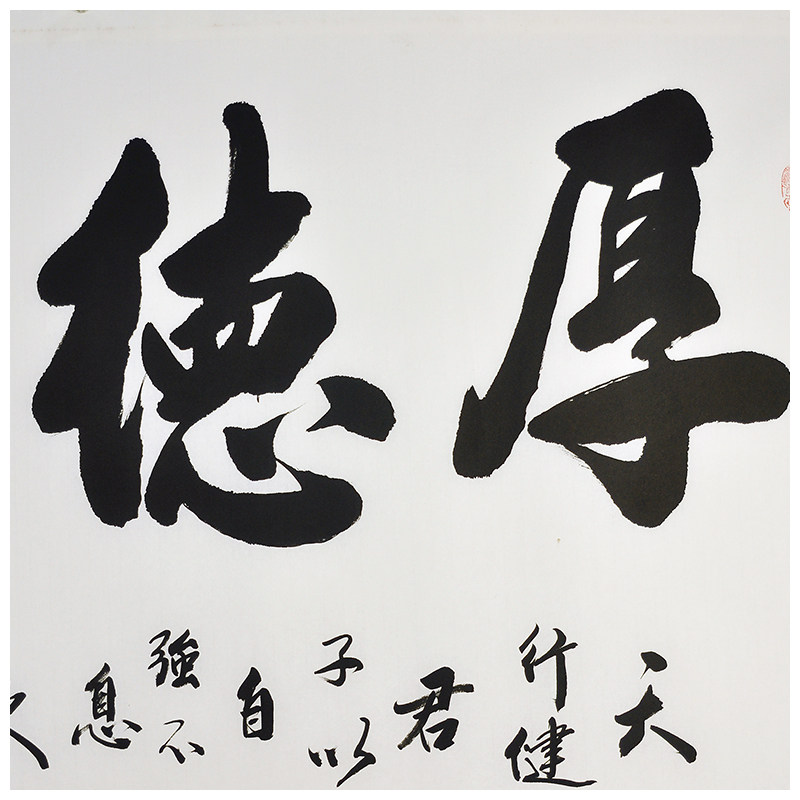 厚德
天
行健
君
子以
自
強不
息